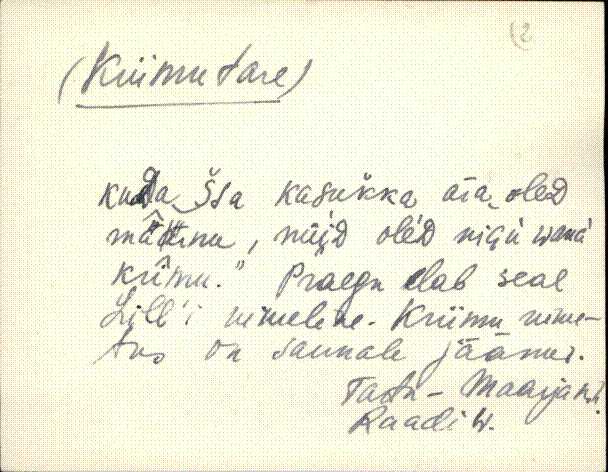 (2
(Kriimu tare)
kuda ššа kasukka ära oled
mätnu, nüjd oled nigu wana
kriimu." Praegu elab seal
Lill'i nimeline. Kriimu nime-
tus on saunale jäänud.
Tartu-Maarja kh.
Raadi w.